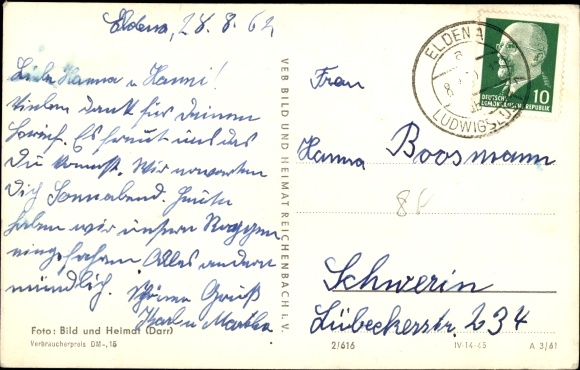 Eldena, 28.8.62
Liebe Hanna u Hanni!
Vielen Dank für Deinen
Es freut uns das
Du kommst. Wir erwarten
Dich Sonnabend. Heute
haben wir unseren Roggen
eingefahren Alles andere
mündlich. Gruß
Karl u Martha
Foto: Bild und Heimat (Darr)
Verbraucherpreis DM -,15
VEB BILD UND HEIMAT REICHENBACH i. V.
ELDENA
LUDWIGSLUST
DEUTSCHE
DEMOKRATISCHE REPUBLIK
10
Frau
Hanna Boosmann
Schwerin
Lübeckerstr. 234
2/616
IV-14-45
A 3/61